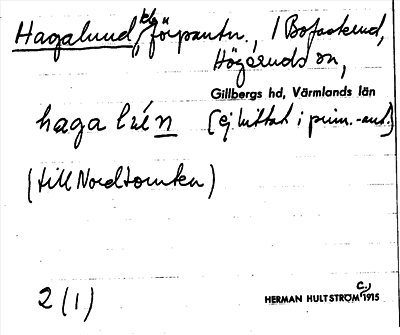 Hagalund, bl. förpantn., i Bofastrud,
Högerud sn,
Gillbergs hd, Värmlands län
haga lún (ej hittat i prim.-ant.)
(till Nordtomten)
2 (1)
HERMAN HULTSTRÖM C. 1915